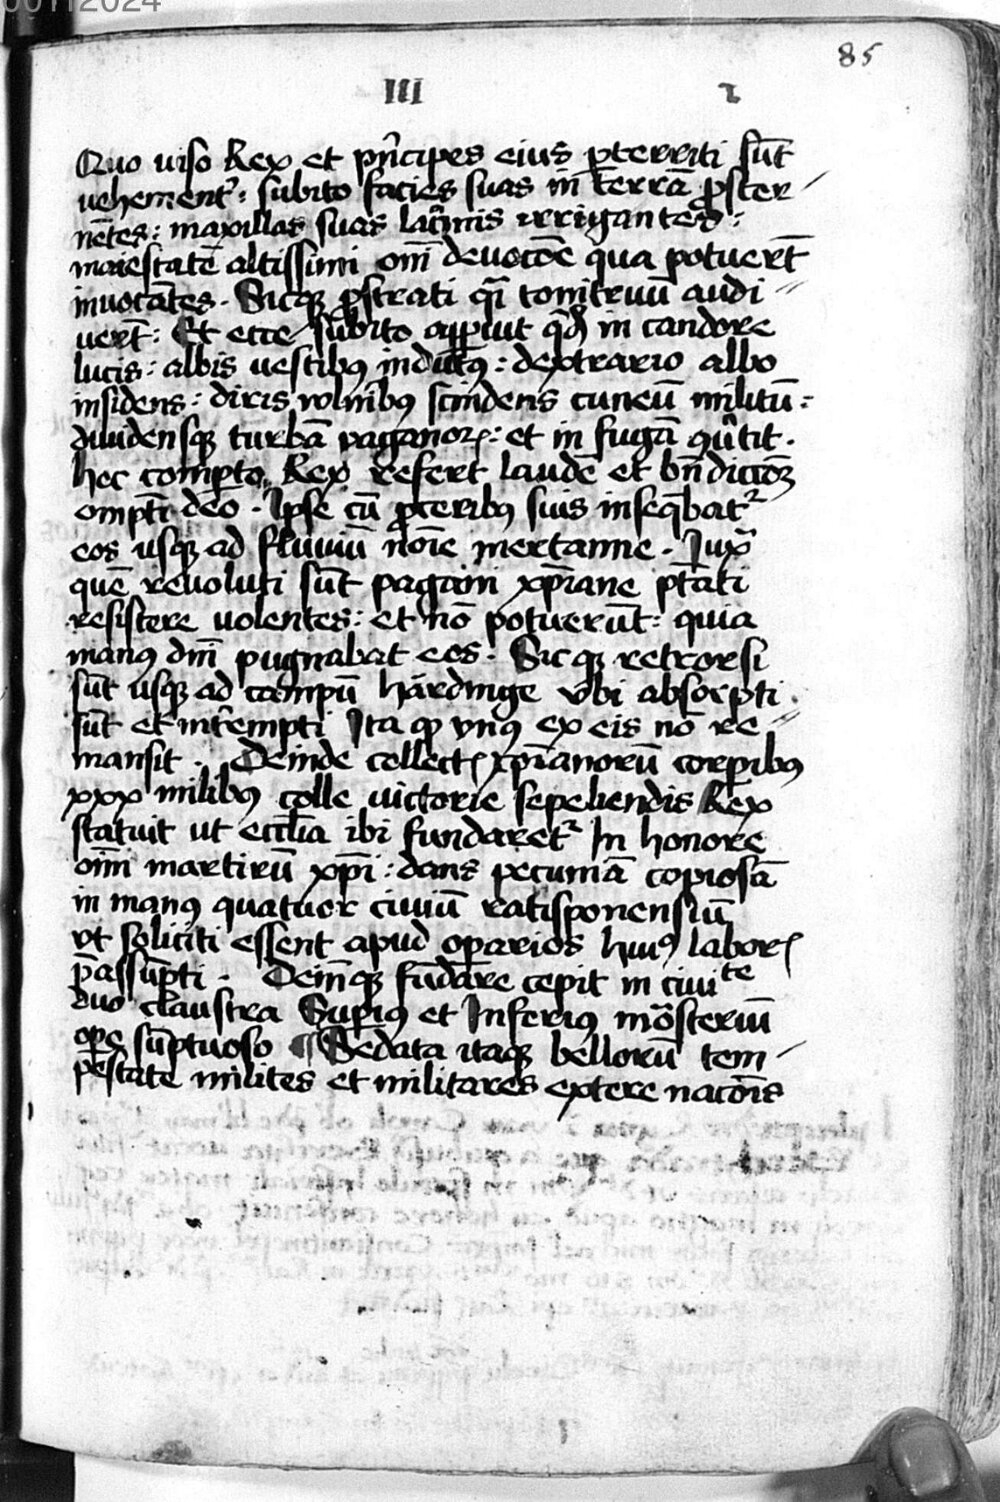 00112024
85
III 2
Quo uiso Rex et pͥncipes eius ꝑterriti sūt
uehement᷑ : subito facies suas in terrā ꝓster
nētes : maxillas suas lac̄mis irrigantes :
maiestatē altissimi om̄i deuocōe qua potuer̄t
inuocātes . Sicqꝫ ꝓstrati q̄i tonitruū audi
uer̄t : Et ecce subito apparuit q̄dā in candore
lucis : albis uestibꝰ indutꝰ : dextrario albo
insidens : diris vulnībꝰ scindens cuneū militū :
diuidensqꝫ turbā paganoꝝ : et in fugā ꝯūtit .
hec comꝑto Rex refert laudē et bn̄dictiōꝫ
om̄pt̄i deo . Ipse cū ꝓceribꝰ suis inseq̄bat᷑
eos usqꝫ ad fluuiū nōīe mertanne . Juxͣ
quē reuoluti sūt pagani xp̄iane pt̄ati
resistere uolentes : et nō potuerūt : quia
manꝰ dn̄i pugnabat eos . Sicqꝫ retrorsi
sūt usqꝫ ad campū hardinge vbi absorpti
sūt et int̄empti Ita qꝫ vnꝰ ex eis nō re
mansit . Deinde collectꝭ xp̄ianorū corꝑibꝰ
xxx milibꝰ colle uictorie sepeliendis Rex
statuit ut eccl̄ia ibi fundaret᷑ In honore
oīm martirū xp̄i : dans pecuniā copiosā
in manꝰ quatuor ciuiū ratisponensiū
vt soliciti essent apud oꝑarios huiꝰ laborꝭ
p̄assūpti . Deinqꝫ fūdare cepit in ciuiᵗᵉ
duo claustra Suꝑiꝰ et Inferiꝰ mōsteriū
oꝑe sūptuoso ¶ Sedata itaqꝫ bellorū tem
pestate milites et militares extere nacōis